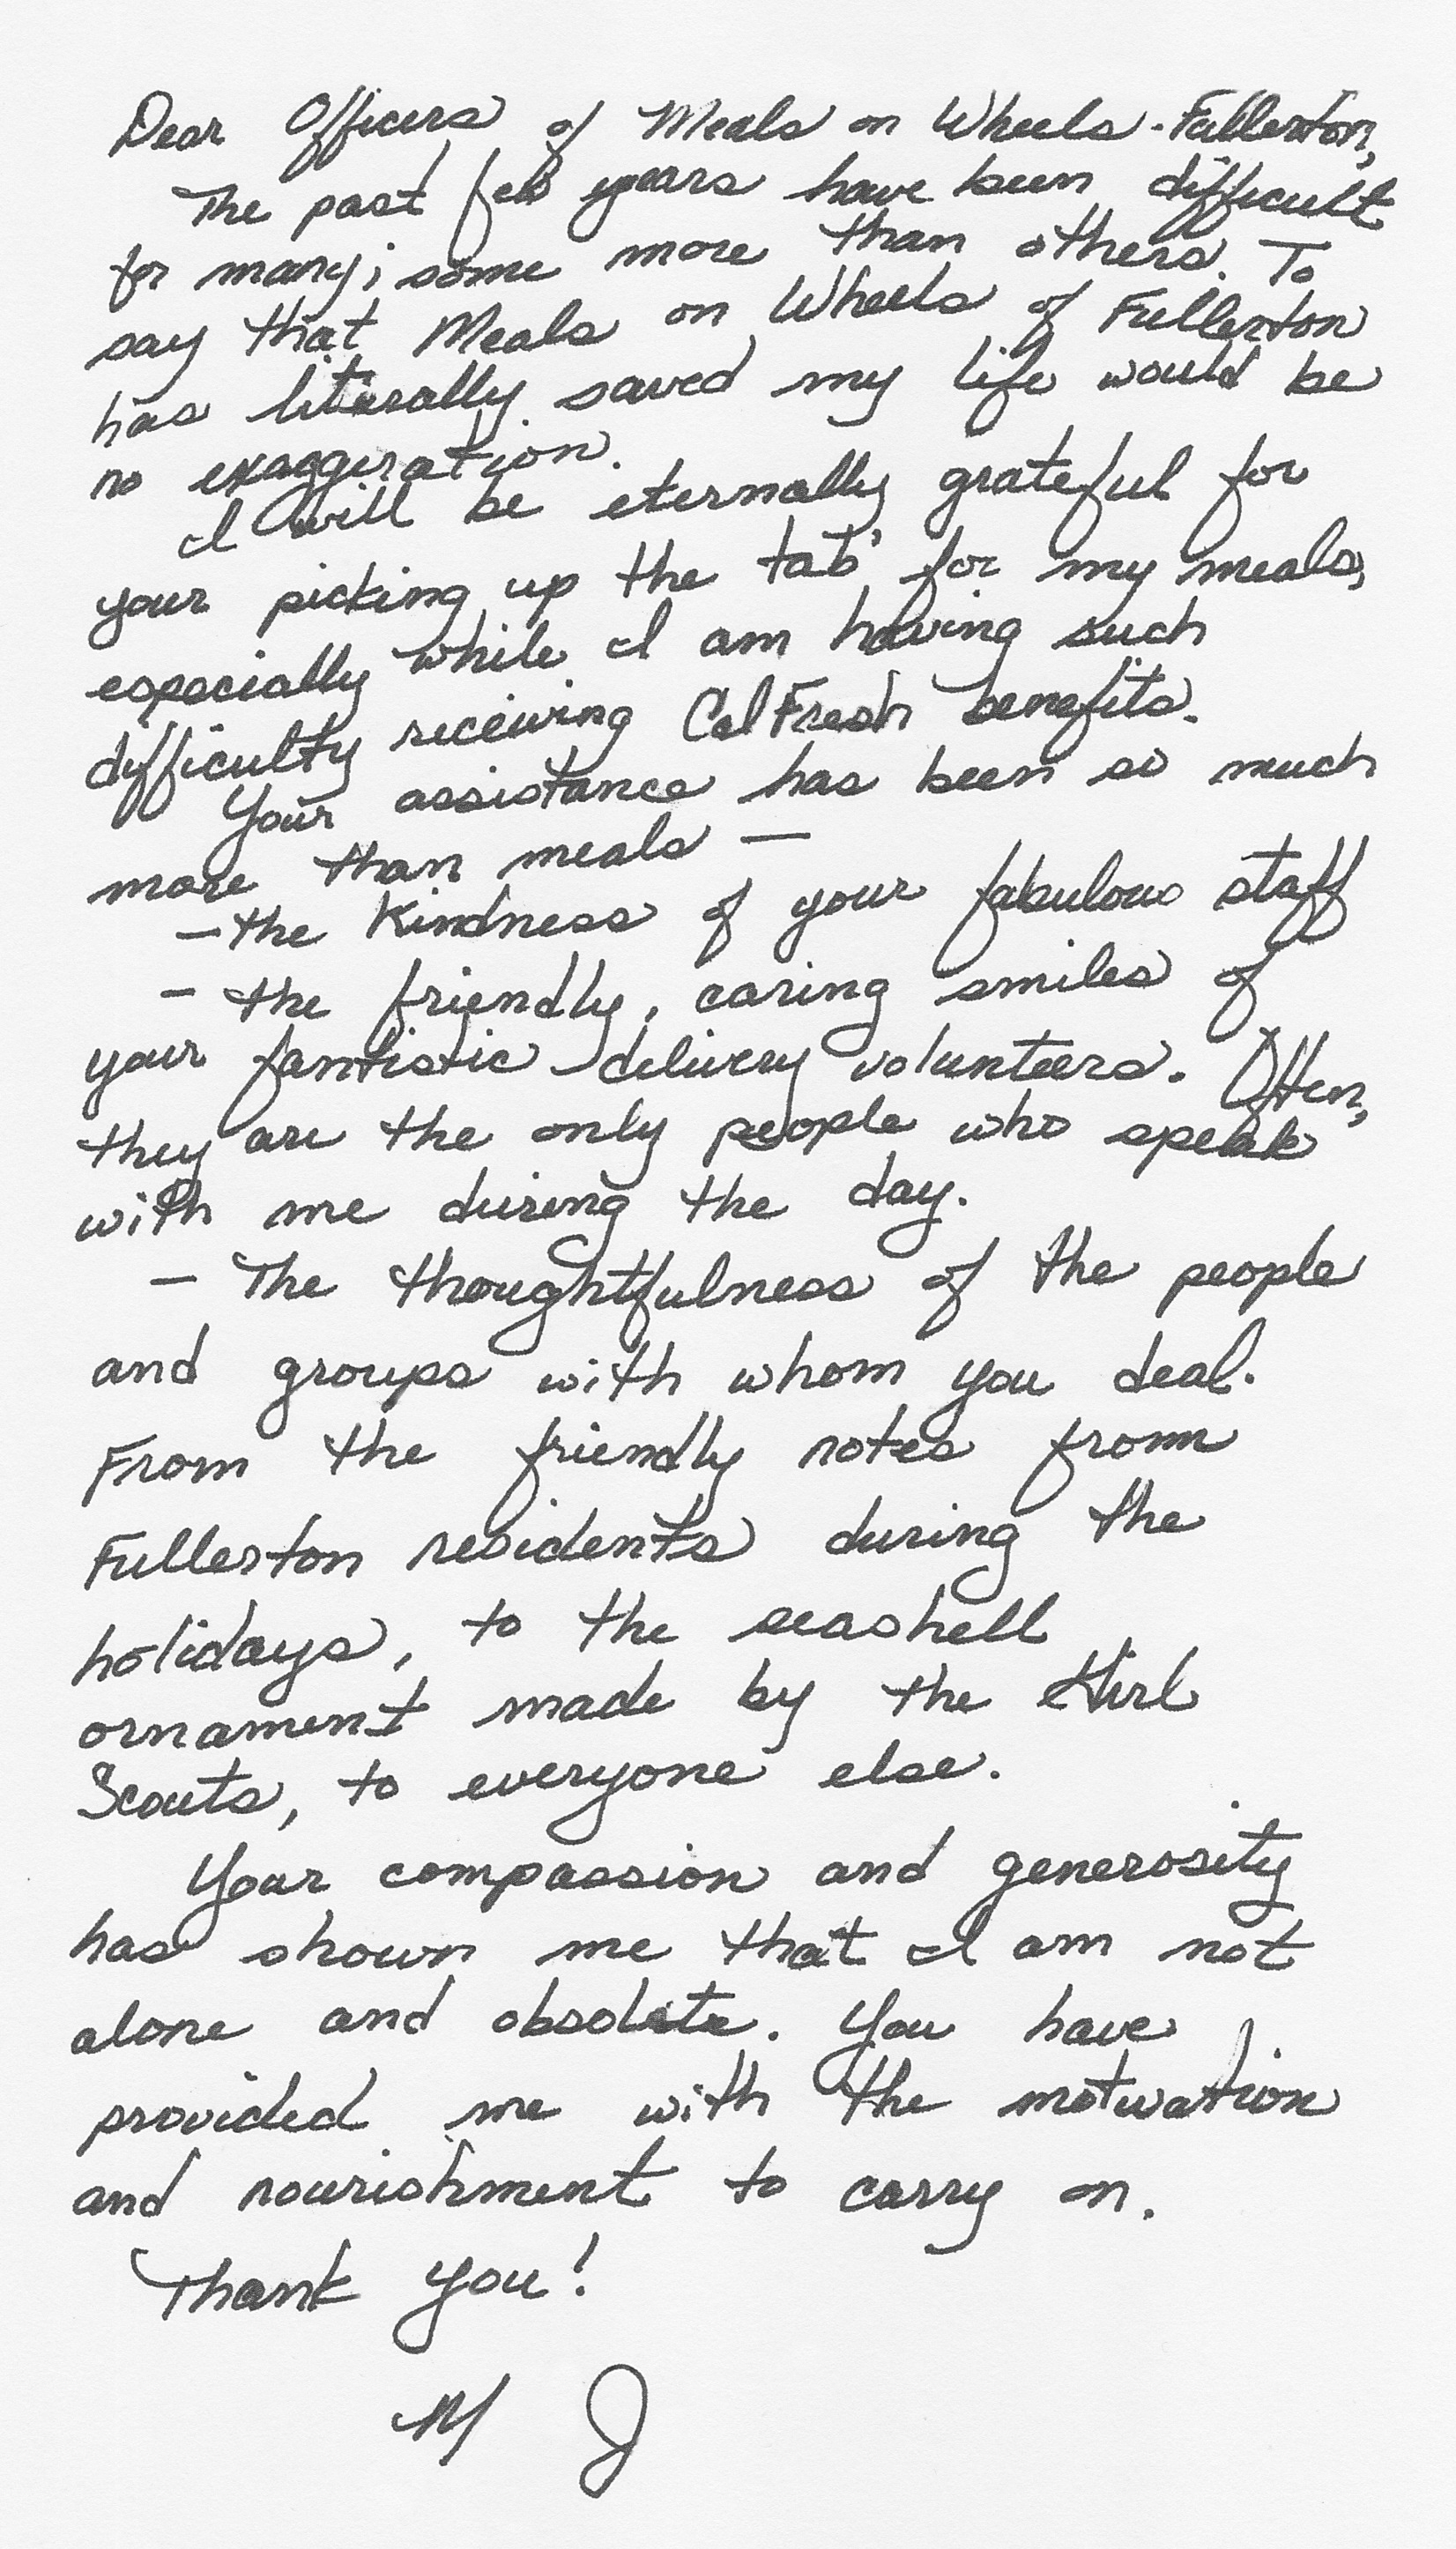 Dear Officers of Meals on Wheels - Fullerton,
The past few years have been difficult
for many; some more than others. To
say that Meals on Wheels of Fullerton
has literally saved my life would be
no exaggeration.
I will be eternally grateful for
your picking up the tab' for my meals,
especially while I am having such
difficulty receiving CalFresh benefits.
Your assistance has been so much
more than meals —
— the kindness of your fabulous staff
- the friendly, caring smiles of
your fantistic delivery volunteers. Often,
they are the only people who speak
with me during the day.
— The thoughtfulness of the people
and groups with whom you deal.
From the friendly notes from
Fullerton residents during the
holidays, to the seashell
ornament made by the Girl
Scouts, to everyone else.
Your compassion and generosity
has shown me that I am not
alone and obsolete. You have
provided me with the motivation
and nourishment to carry on.
Thank you!
M J